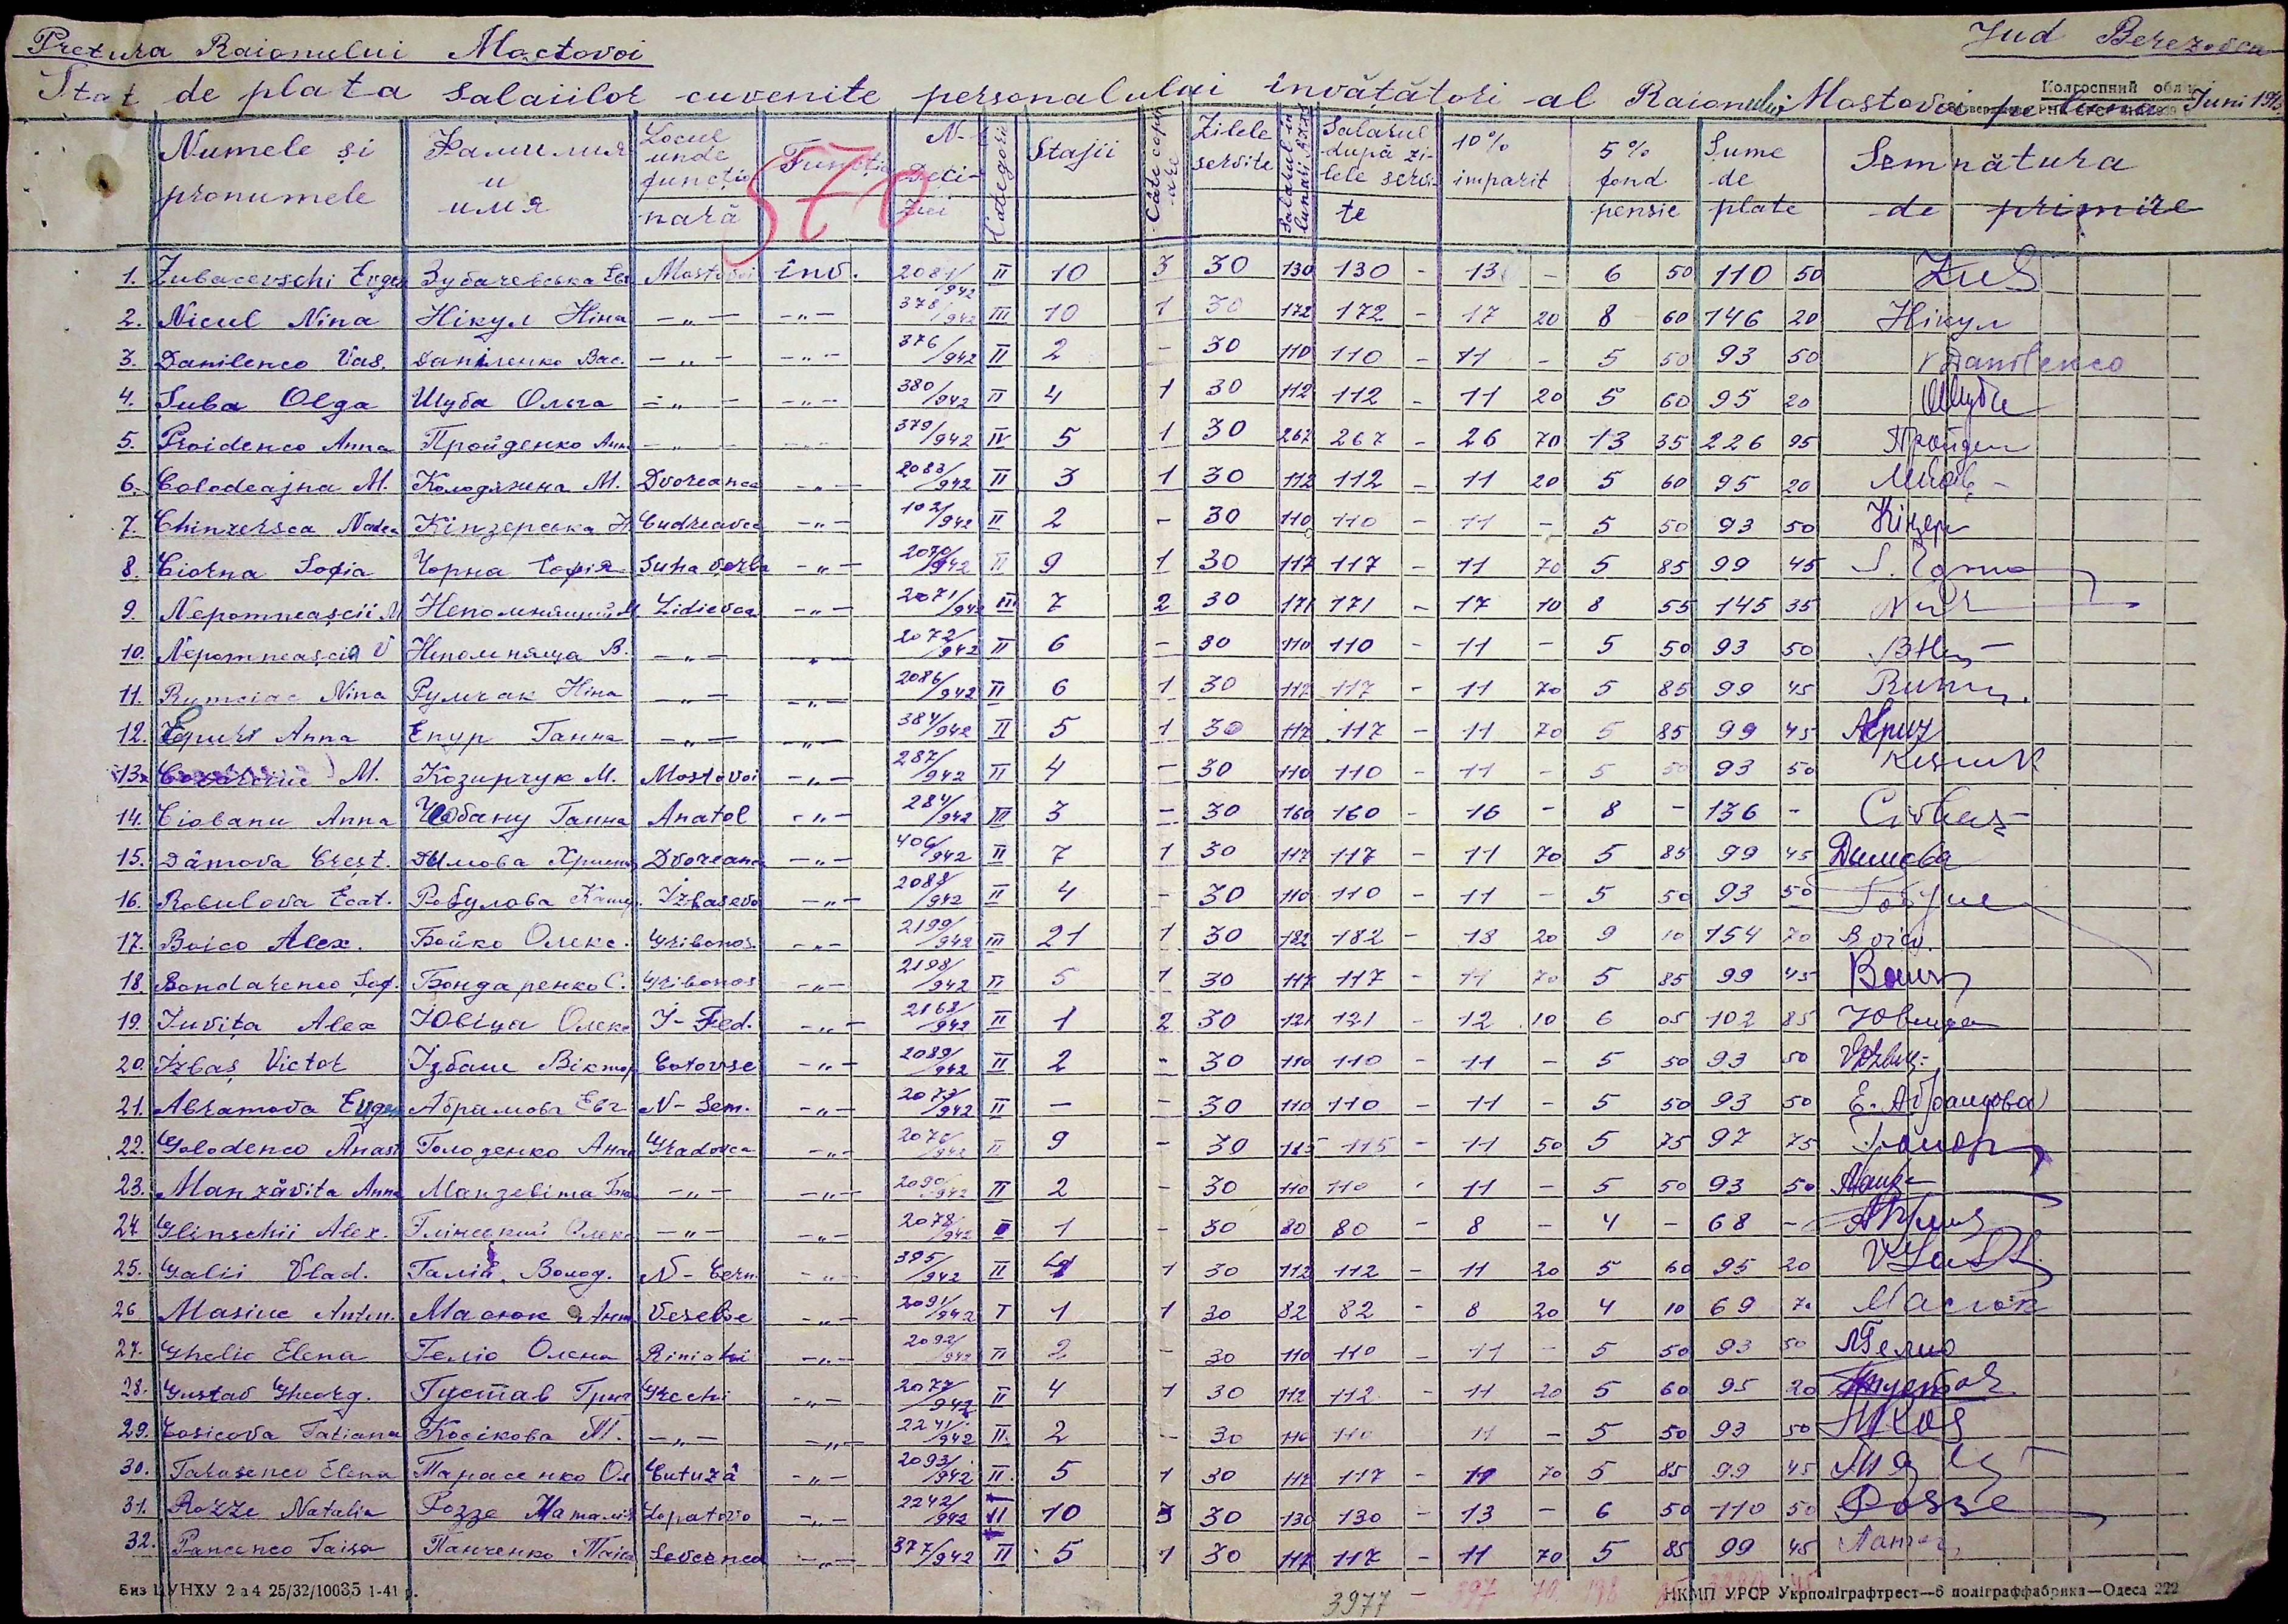 Pretura Raionului Mostovoi
Jud Berezovca
Stat de plata salariilor cuvenite personalului învățători al Raionului Mostovoi pe luna Juni 194
Колгоспний облік
Numele și pronumele | Фамилия и имя | Locul unde funcționară | Funcția | N- Deciziei | Categoria | Stajii | Câte copii are | Zilele servite | Salarul în lunari | Salarul după zilele servite | 10% imparit | 5% fond pensie | Sume de plate | Semnătura de primire
570
1. Zubacevschi Evgen | Зубачевська Євг | Mostovoi | înv. | 2081/942 | II | 10 | 3 | 30 | 130 | 130 - | 13 - | 6 50 | 110 50 | Zub
2. Nicul Nina | Нікул Ніна | -„- | -„- | 378/942 | III | 10 | 1 | 30 | 172 | 172 - | 17 20 | 8 60 | 146 20 | Нікул
3. Danilenco Vas. | Даніленко Вас. | -„- | -„- | 376/942 | II | 2 | - | 30 | 110 | 110 - | 11 - | 5 50 | 93 50 | V Danilenco
4. Suba Olga | Шуба Ольга | -„- | -„- | 380/942 | II | 4 | 1 | 30 | 112 | 112 - | 11 20 | 5 60 | 95 20
5. Proidenco Anna | Пройденко Анн | -„- | -„- | 379/942 | IV | 5 | 1 | 30 | 267 | 267 - | 26 70 | 13 35 | 226 95 | Пройден
6. Colodeajna M. | Колодяжна М. | Dvoreanca | -„- | 2083/942 | II | 3 | 1 | 30 | 112 | 112 - | 11 20 | 5 60 | 95 20
7. Chinzersca Nadea | Кінзерська Н | Cudreavca | -„- | 102/942 | II | 2 | - | 30 | 110 | 110 - | 11 - | 5 50 | 93 50 | Кінзер
8. Ciorna Sofia | Чорна Софія | Suha Verba | -„- | 2070/942 | II | 9 | 1 | 30 | 117 | 117 - | 11 70 | 5 85 | 99 45
9. Nepomneașcii M | Непомнящий М | Zidievca | -„- | 2071/942 | III | 7 | 2 | 30 | 171 | 171 - | 17 10 | 8 55 | 145 35
10. Nepomneașcia V | Непомняща В. | -„- | -„- | 2072/942 | II | 6 | - | 30 | 110 | 110 - | 11 - | 5 50 | 93 50
11. Rumciac Nina | Румчак Ніна | -„- | -„- | 2086/942 | II | 6 | 1 | 30 | 117 | 117 - | 11 70 | 5 85 | 99 45
12. Epuri Anna | Епур Ганна | -„- | -„- | 384/942 | II | 5 | 1 | 30 | 117 | 117 - | 11 70 | 5 85 | 99 45
13. M. | Козирчук М. | Mostovoi | -„- | 287/942 | II | 4 | - | 30 | 110 | 110 - | 11 - | 5 50 | 93 50
14. Ciobanu Anna | Чобану Ганна | Anatol | -„- | 284/942 | III | 3 | - | 30 | 160 | 160 - | 16 - | 8 - | 136 -
15. Dâmova Crest. | Димова Христ | Dvoreanca | -„- | 406/942 | II | 7 | 1 | 30 | 117 | 117 - | 11 70 | 5 85 | 99 45 | Димова
16. Robulova Ecat. | Робулова Катер. | Izbasevo | -„- | 2088/942 | II | 4 | - | 30 | 110 | 110 - | 11 - | 5 50 | 93 50
17. Boico Alex. | Бойко Олекс. | Gribonos | -„- | 2199/942 | III | 21 | 1 | 30 | 182 | 182 - | 18 20 | 9 10 | 154 70 | Boico
18. Bondarenco Sof. | Бондаренко С. | Gribonos | -„- | 2198/942 | II | 5 | 1 | 30 | 117 | 117 - | 11 70 | 5 85 | 99 45
19. Iuvița Alex | Ювіца Олекс | I-Fed. | -„- | 2168/942 | II | 1 | 2 | 30 | 121 | 121 - | 12 10 | 6 05 | 102 85 | Ювица
20. Izbaș Victor | Ізбаш Віктор | Cotovsc | -„- | 2089/942 | II | 2 | - | 30 | 110 | 110 - | 11 - | 5 50 | 93 50
21. Abramova Eugen | Абрамова Євг | N-Sem. | -„- | 2073/942 | II | - | - | 30 | 110 | 110 - | 11 - | 5 50 | 93 50 | Е. Абрамова
22. Golodenco Anast | Голоденко Анас | Gradovca | -„- | 2076/942 | II | 9 | - | 30 | 115 | 115 - | 11 50 | 5 75 | 97 75
23. Manzăvita Anna | Манзевіта Ган | -„- | -„- | 2090/942 | II | 2 | - | 30 | 110 | 110 - | 11 - | 5 50 | 93 50
24. Glinschii Alex. | Глінський Олекс | -„- | -„- | 2078/942 | I | 1 | - | 30 | 80 | 80 - | 8 - | 4 - | 68 -
25. Galii Vlad. | Галій Волод. | N-Cern. | -„- | 395/942 | II | 4 | 1 | 30 | 112 | 112 - | 11 20 | 5 60 | 95 20
26 Masiuc Anton. | Масюк Антон | Veseloe | -„- | 2091/942 | I | 1 | 1 | 30 | 82 | 82 - | 8 20 | 4 10 | 69 70 | Масюк
27. Ghelio Elena | Геліо Олена | Riniatvi | -„- | 2092/942 | II | 2 | - | 30 | 110 | 110 - | 11 - | 5 50 | 93 50 | Гелио
28. Gustav Gheorg. | Густав Григ | Grechi | -„- | 2077/942 | II | 4 | 1 | 30 | 112 | 112 - | 11 20 | 5 60 | 95 20 | Густав
29. Cosicova Tatiana | Косікова Т. | -„- | -„- | 2241/942 | II | 2 | - | 30 | 110 | 110 | 11 - | 5 50 | 93 50
30. Tarasenco Elena | Тарасенко Ол | Cutuză | -„- | 2093/942 | II | 5 | 1 | 30 | 117 | 117 - | 11 70 | 5 85 | 99 45
31. Rozze Natalia | Розе Наталія | Lopatovo | -„- | 2242/942 | II | 10 | 3 | 30 | 130 | 130 - | 13 - | 6 50 | 110 50 | Роззе
32. Pancenco Taisa | Панченко Таіса | Sevcenco | -„- | 377/942 | II | 5 | 1 | 30 | 117 | 117 - | 11 70 | 5 85 | 99 45
3977 - 397 70 198
Биз ЦУНХУ 2 а 4 25/32/10035 1-41 р.
НКМП УРСР Укрполіграфтрест—6 поліграффабрика—Одеса 222